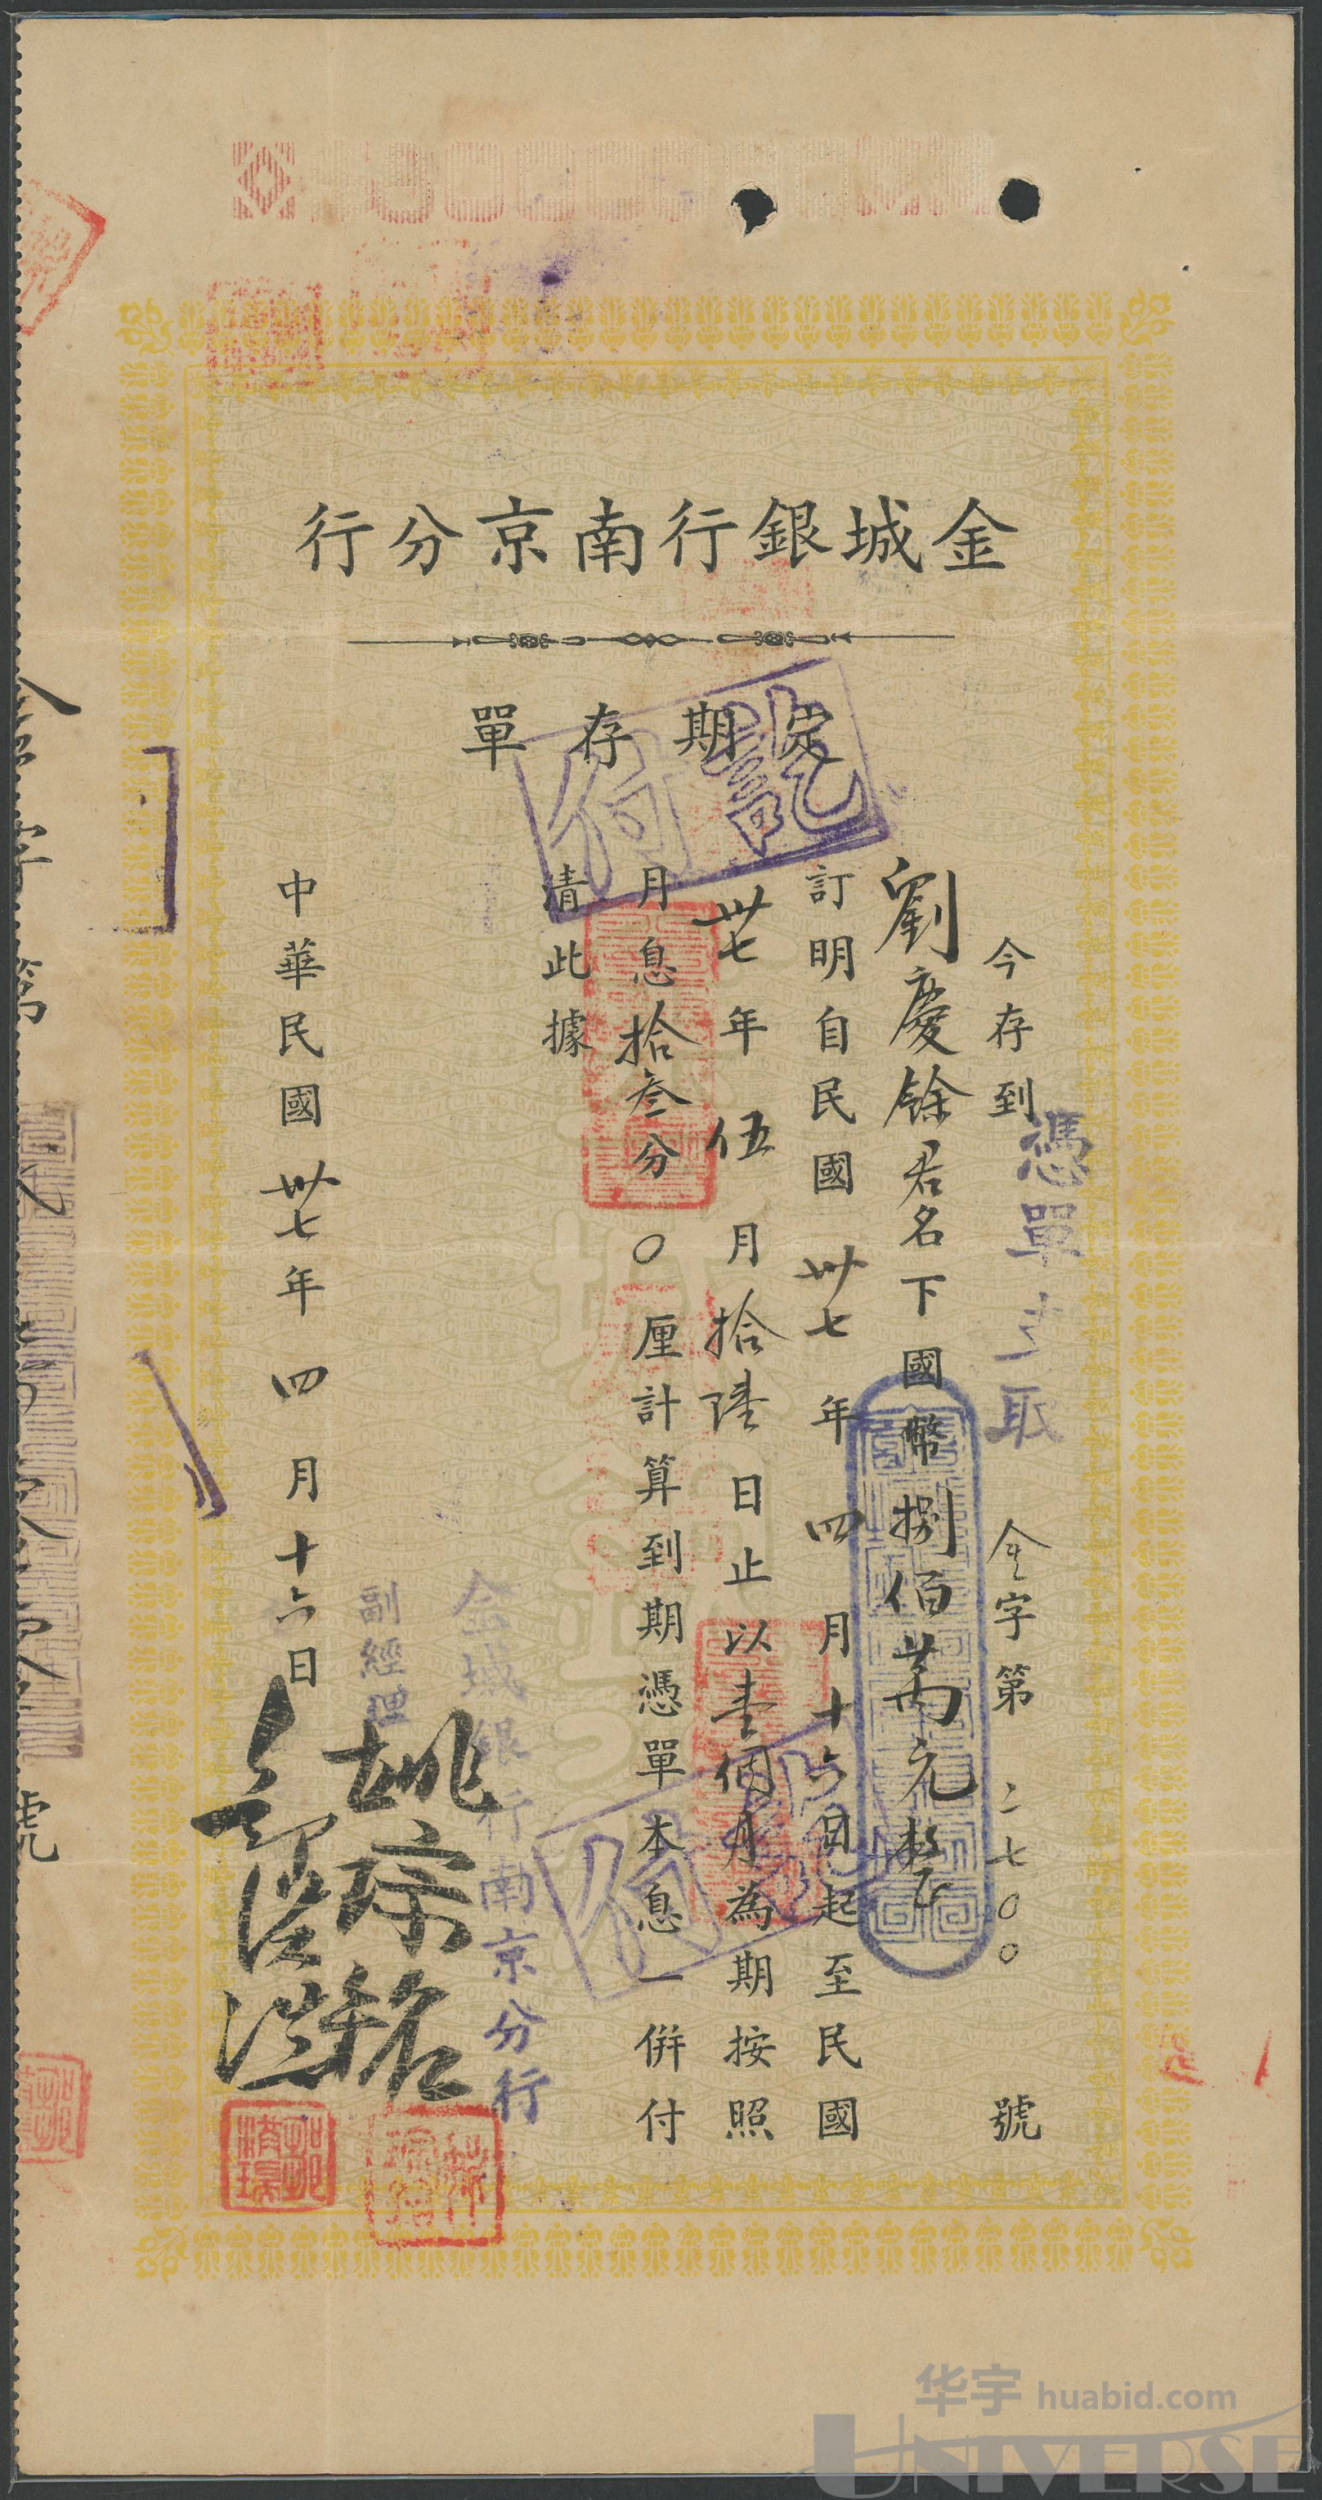 金城銀行南京分行
定期存單
今存到 金字第二七〇〇號
憑單支取
劉慶餘君名下國幣捌佰萬元整
訂明自民國卅七年四月十六日起至民國
卅七年伍月拾陸日止以壹個月為期按照
月息拾叁分〇厘計算到期憑單本息一併付
清此據
金城銀行南京分行
副經理
姚琮銘
中華民國卅七年四月十六日
付訖
付訖
號
华宇 huabid.com
UNIVERSE